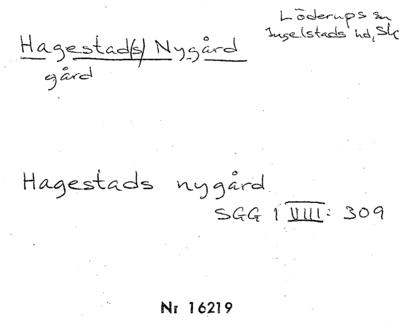 Löderups sn
Ingelstads hd, Sk
Hagestad(s) Nygård
gård
Hagestads nygård
SGG 1 VIII: 309
Nr 16219